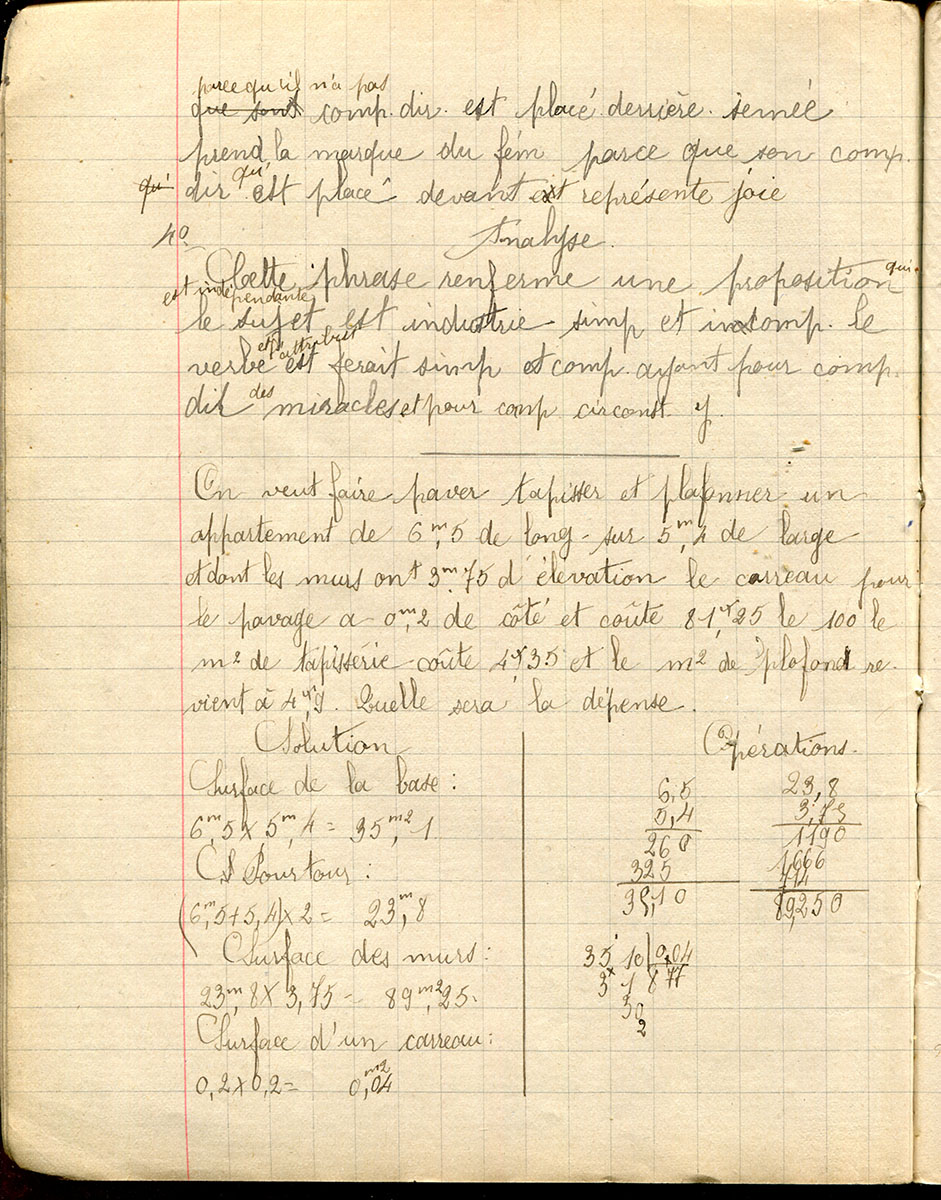 parce qu'il n'a pas
que sont comp. dir. est placé derrière. semée
prend la marque du fém parce que son comp.
qui dir qui est placé devant et représente joie
4º Analyse.
Cette phrase renferme une proposition qui
est indépendante
le sujet est industrie simp et incomp. le
et l'attribut
verbe est ferait simp et comp. ayant pour comp.
dir des miracles et pour comp circonst. y.
On veut faire paver tapisser et plafonner un
appartement de 6m,5 de long sur 5m,4 de large
et dont les murs ont 3m75 d'élévation le carreau pour
le pavage a 0m,2 de côté et coûte 81f,25 le 100 le
m2 de tapisserie coûte 4f,35 et le m2 de plafond re-
vient à 4f,9. Quelle sera la dépense.
Solution
Surface de la base:
6m,5 x 5m,4 = 35m2,1
Pourtour:
(6m,5+5,4) x 2 = 23m,8
Surface des murs:
23m,8 x 3,75 = 89m2,25.
Surface d'un carreau:
0,2 x 0,2 = 0m2,04
Opérations.
6,5
5,4
260
325
35,10
23,8
3,75
1190
1666
714
89,250
35 10 | 0,04
3 1 877
30
2